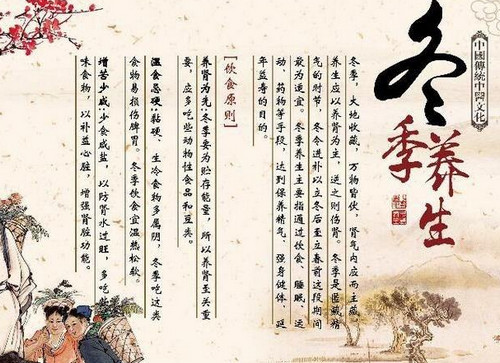 中國傳統中醫文化
冬季养生
冬季，大地收藏，万物皆伏，肾气内应而主藏，
养生应以养肾为主，逆之则伤肾。冬季是匿藏精
气的时节，冬令进补以立冬后至立春前这段期间
最为适宜。冬季养生主要指通过饮食、睡眠、运
动、药物等手段，达到保养精气、强身健体、延
年益寿的目的。
[饮食原则]
养肾为先:冬季要为贮存能量，所以养肾至关重
要，应多吃些动物性食品和豆类。
温食忌硬:黏硬、生冷食物多属阴，冬季吃这类
食物易损伤脾胃。冬季饮食宜温热松软。
增苦少咸:少食咸盐，以防肾水过旺，多吃些苦
味食物，以补益心脏，增强肾脏功能。